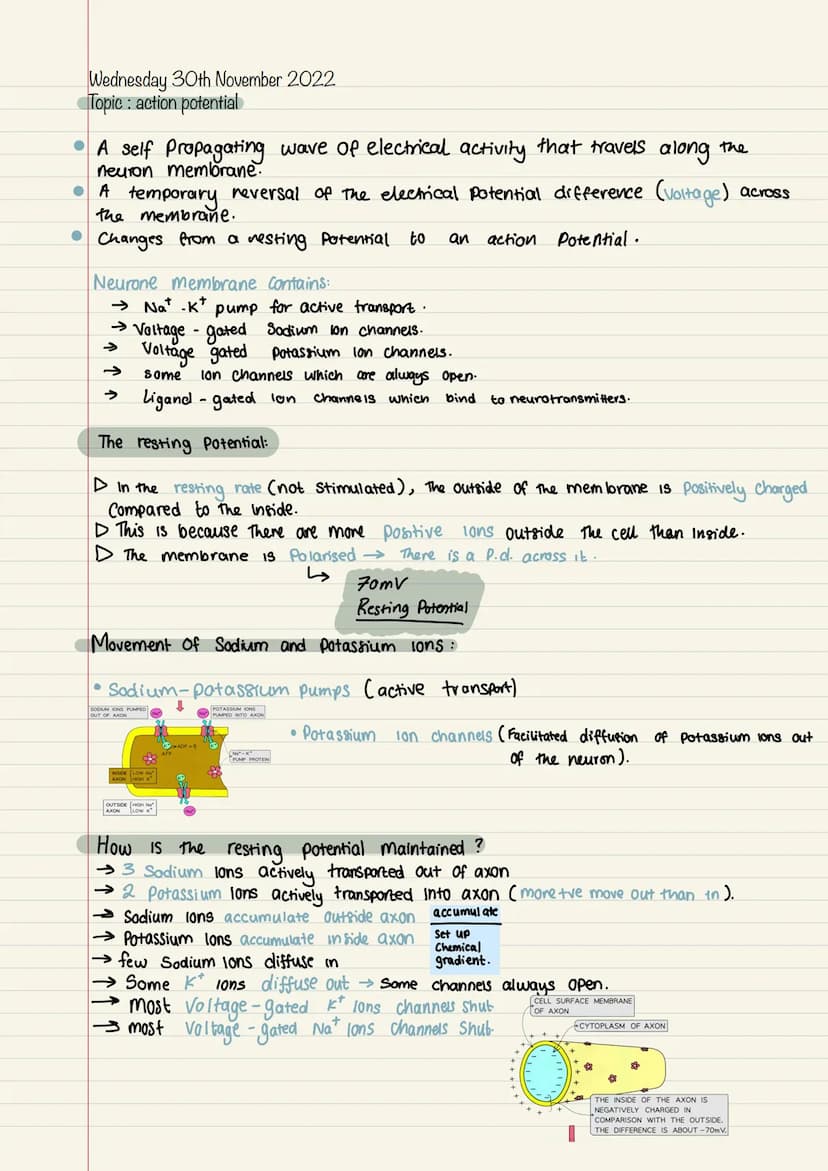 Wednesday 30th November 2022
Topic : action potential
A self propagating wave of electrical activity that travels along the
neuron membrane.
A temporary reversal of the electrical potential difference (voltage) across
the membrane.
Changes from a resting potential to an action potential.
Neurone membrane contains:
→ Na⁺ -K⁺ pump for active transport.
→ Voltage - gated sodium ion channels.
→ Voltage gated potassium ion channels.
→ some ion channels which are always open.
→ Ligand - gated ion channels which bind to neurotransmitters.
The resting potential:
▷ In the resting rate (not stimulated), the outside of the membrane is positively charged
compared to the inside.
▷ This is because there are more positive ions outside the cell than inside.
▷ The membrane is polarised → There is a p.d. across it.
↳ 70mV
Resting Potential
Movement of sodium and potassium ions :
• Sodium-potassium pumps (active transport)
SODIUM IONS PUMPED
OUT OF AXON
Na⁺
Na⁺
POTASSIUM IONS
PUMPED INTO AXON
ADP + Pi
ATP
Na⁺-K⁺
PUMP PROTEIN
INSIDE
AXON
LOW Na⁺
HIGH K⁺
OUTSIDE
AXON
HIGH Na⁺
LOW K⁺
Na⁺
• Potassium ion channels (facilitated diffusion of potassium ions out
of the neuron).
How is the resting potential maintained ?
→ 3 Sodium ions actively transported out of axon
→ 2 Potassium ions actively transported into axon (more +ve move out than in).
→ Sodium ions accumulate outside axon
→ Potassium ions accumulate inside axon
accumulate
Set up
Chemical
gradient.
→ few sodium ions diffuse in
→ Some K⁺ ions diffuse out → Some channels always open.
→ most voltage-gated K⁺ ions channels shut
→ most voltage - gated Na⁺ ions channels shut.
CELL SURFACE MEMBRANE
OF AXON
CYTOPLASM OF AXON
THE INSIDE OF THE AXON IS
NEGATIVELY CHARGED IN
COMPARISON WITH THE OUTSIDE.
THE DIFFERENCE IS ABOUT -70mV.